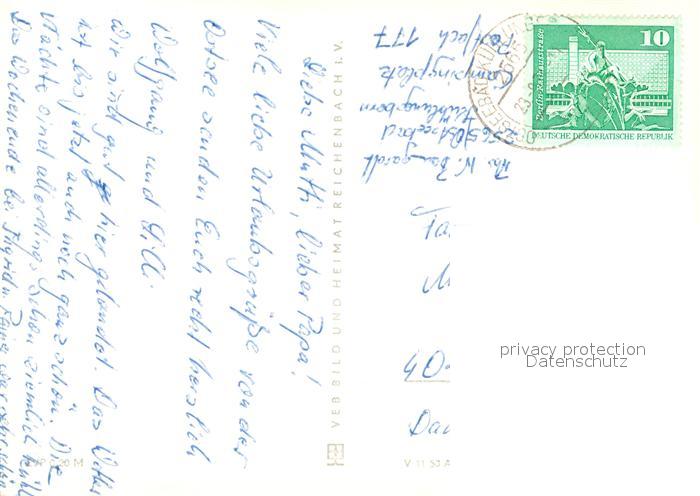 Liebe Mutti, lieber Papa!
Viele liebe Urlaubsgrüße von der
Ostsee senden Euch recht herzlich
Wolfgang und Silli.
Wir sind gut hier gelandet. Das Wetter
ist bis jetzt auch noch ganz schön. Die
Nächte sind allerdings schon ziemlich kühl.
Das Wochenende bei
VEB BILD UND HEIMAT REICHENBACH i. V.
V 11 50 A
Abs. W.
2565 Ostseebad
Kühlungsborn
Campingplatz
Postfach 177
OSTSEEBAD KÜHLUNGSBORN
2565
10
Berlin-Rathausstraße
DEUTSCHE DEMOKRATISCHE REPUBLIK
40
privacy protection
Datenschutz